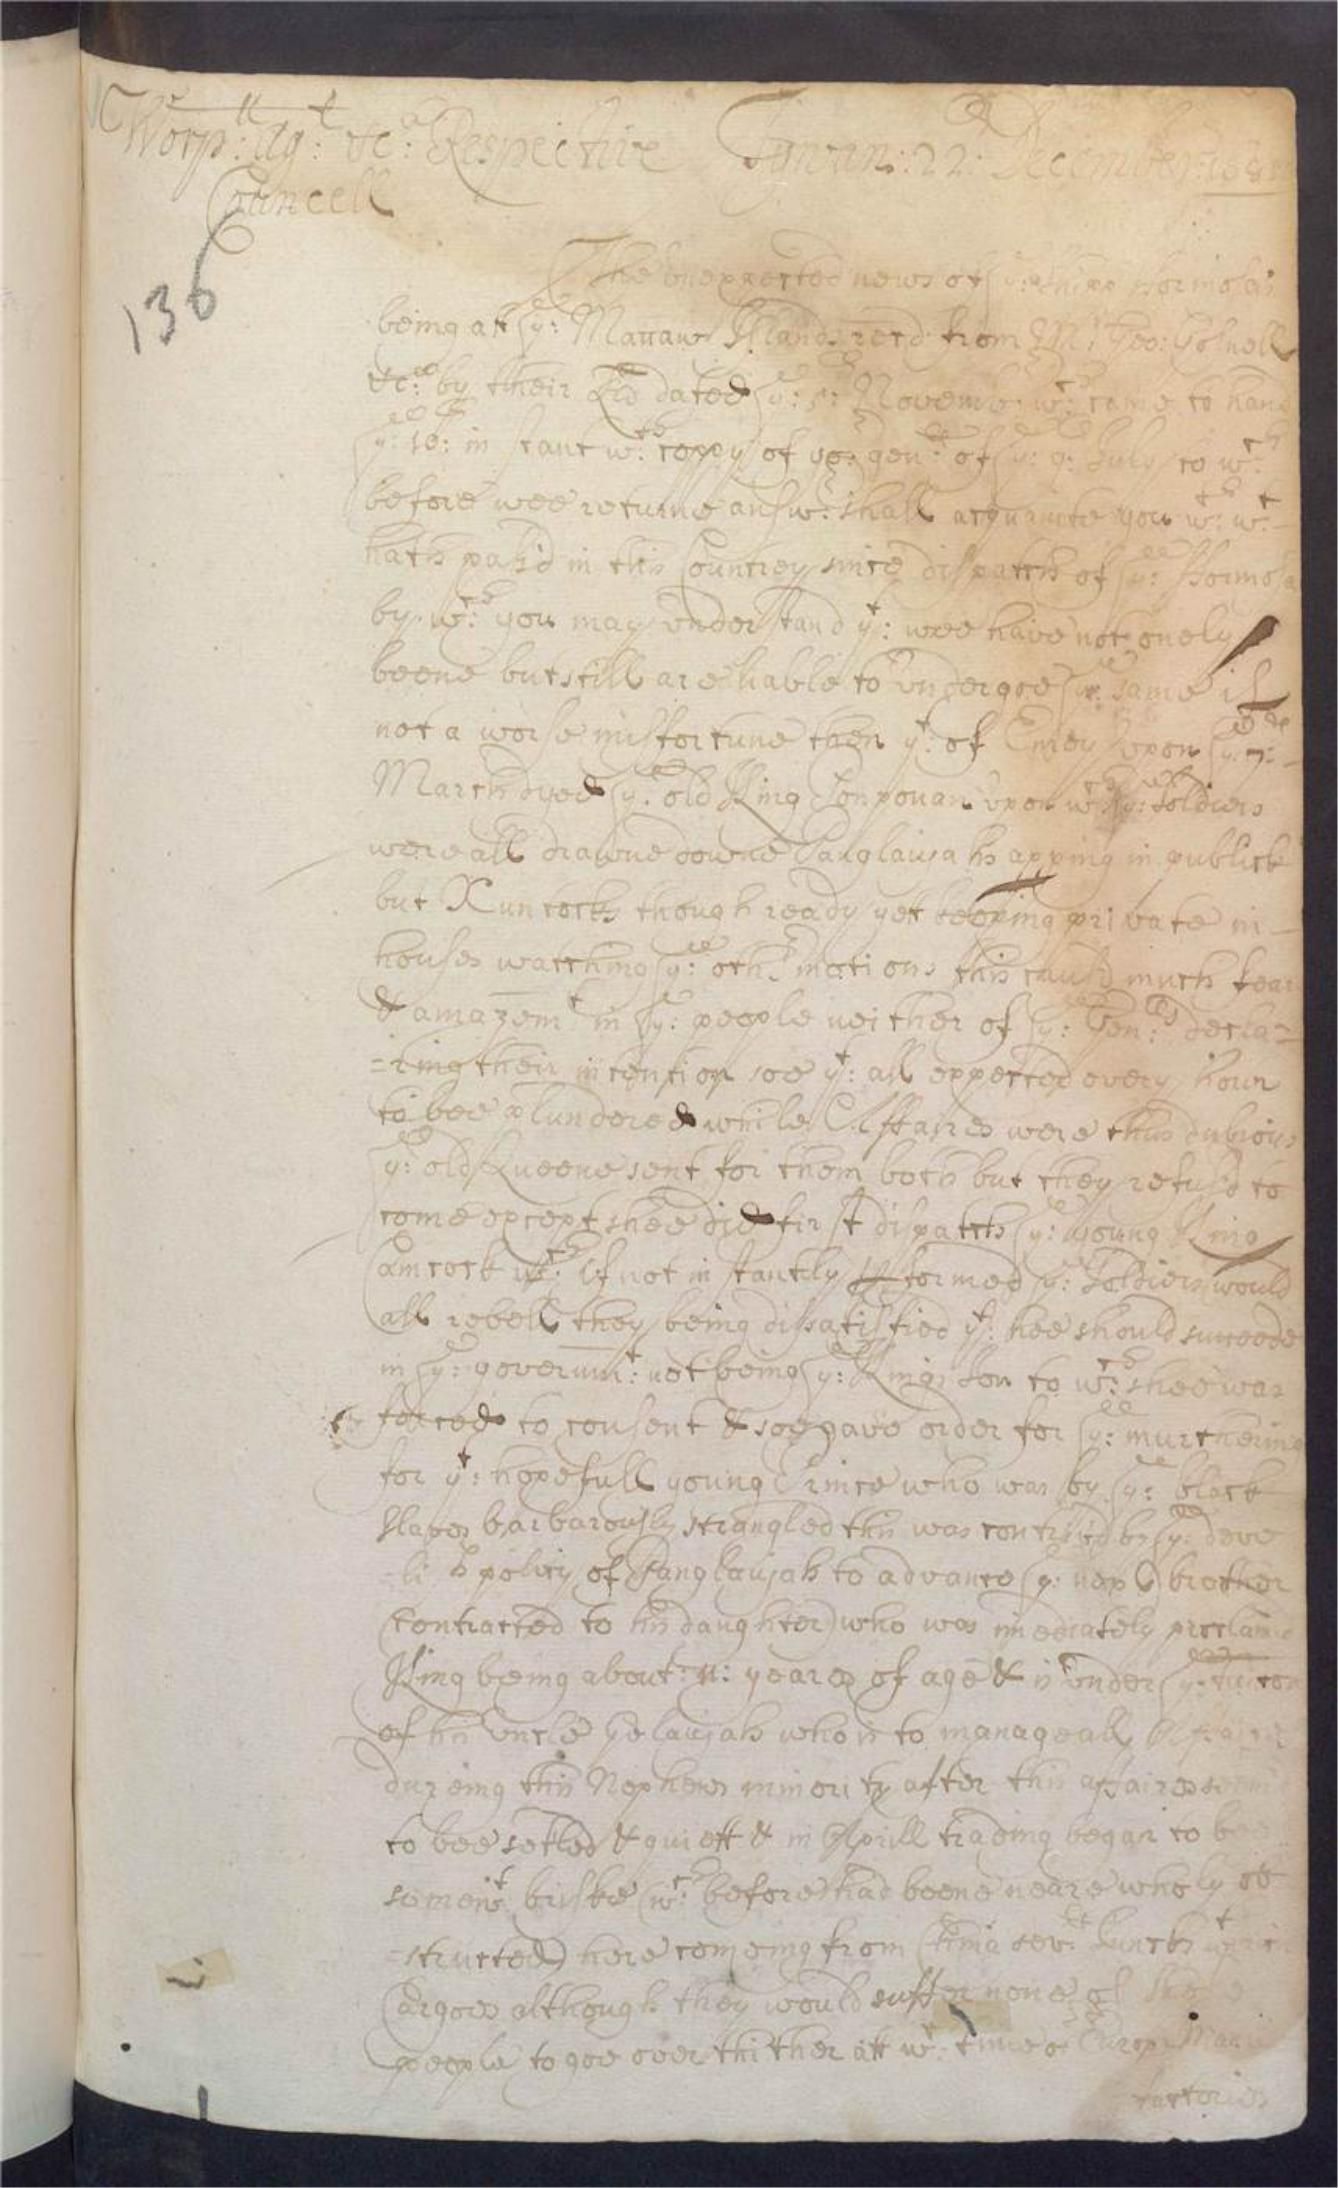 Worp:ll Ag:t &c:a Respective Tywan: 22: December: 1681
Councell
136
The unexpected news of ye: Shipp Formosa's
being at ye: Maccaw Islands recd from Mr: Geo: Gosnell
&c:a by their Lrs dated ye: 5: Novemb:r w:ch came to hand
ye: 10: instant w:th coppy of yor: gen:ll of ye: 9: July to w:ch
before wee returne answ:r shall acquainte you w:th w:t
hath pass'd in this Countrey since dispatch of ye: Formosa
by w:ch you may understand yt: wee have not onely
beene but still are liable to undergoe ye: same if
not a worse misfortune then yt: of Emoy upon ye: 7:
March dyed ye: old King Tonpouan upon w:ch ye: Soldiers
were all drawne downe Sanglaujahs apping in publick
but Xuncocks though ready yet keeping private in
houses watching ye: othr: motions this caus'd much fear
& amazemt in ye: people neither of ye: Gen:lls decla=
=ring their intention soe yt: all expected every hour
to bee plundered while Affaires were thus dubious
ye: old Queene sent for them both but they refus'd to
come except shee did first dispatch ye: young King
Camcock w:ch if not instantly pformed ye: Soldiers would
all rebell they being dissatisfied yt: hee should succeede
in ye: governmt: not being ye: Kings Son to w:ch shee was
forced to consent & soe gave order for ye: murthering
for yt: hopefull young Prince who was by ye: black
slaves barbarously strangled this was contriv'd by ye: deve
lish policy of Sanglaujah to advance ye: next brother
(contracted to his daughter) who was imediately proclam'd
King being about: 11: yeares of age & is under ye: tuition
of his Uncle Gelaujah who is to manage all Affaires
dureing this Nephews minority after this affaires seem'd
to bee setled & quiett & in Aprill trading began to bee
somewt briske (w:ch before had beene neare wholy ob
=structed) here comeing from China sev:ll Junck's wt rich
Cargoes although they would suffer none of these
people to goe over thither att w:t time
factories